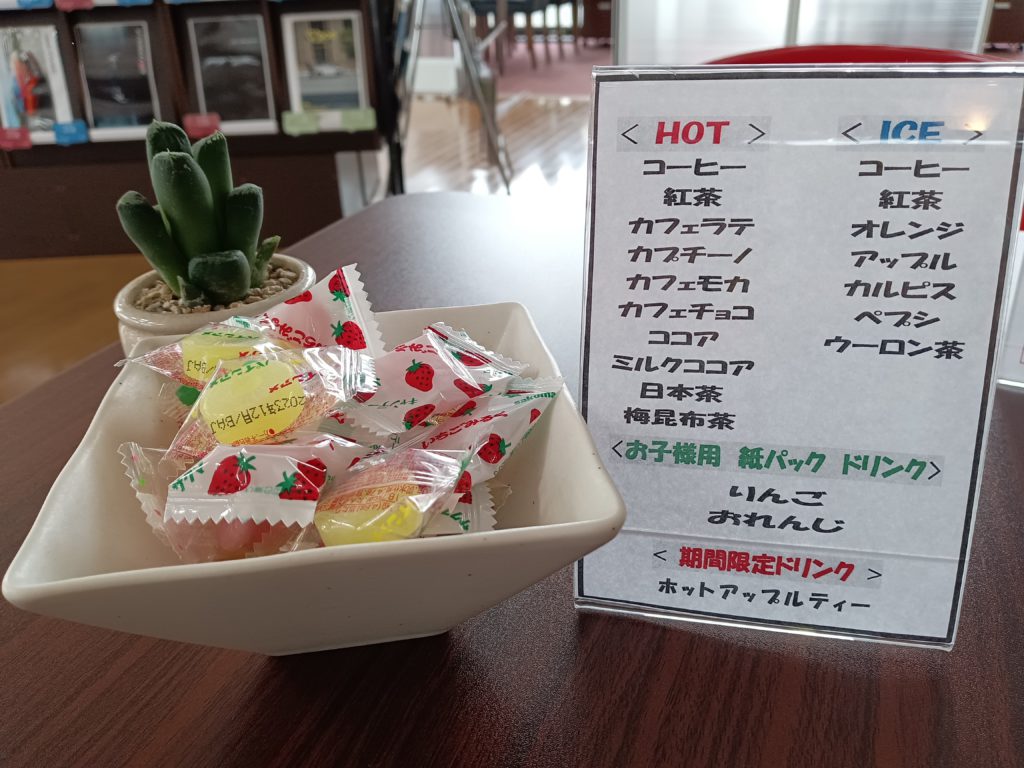 < HOT >
コーヒー
紅茶
カフェラテ
カプチーノ
カフェモカ
カフェチョコ
ココア
ミルクココア
日本茶
梅昆布茶
< ICE >
コーヒー
紅茶
オレンジ
アップル
カルピス
ペプシ
ウーロン茶
<お子様用 紙パック ドリンク>
りんご
おれんじ
< 期間限定ドリンク >
ホットアップルティー
2023年12月/BAJ
キャンデー